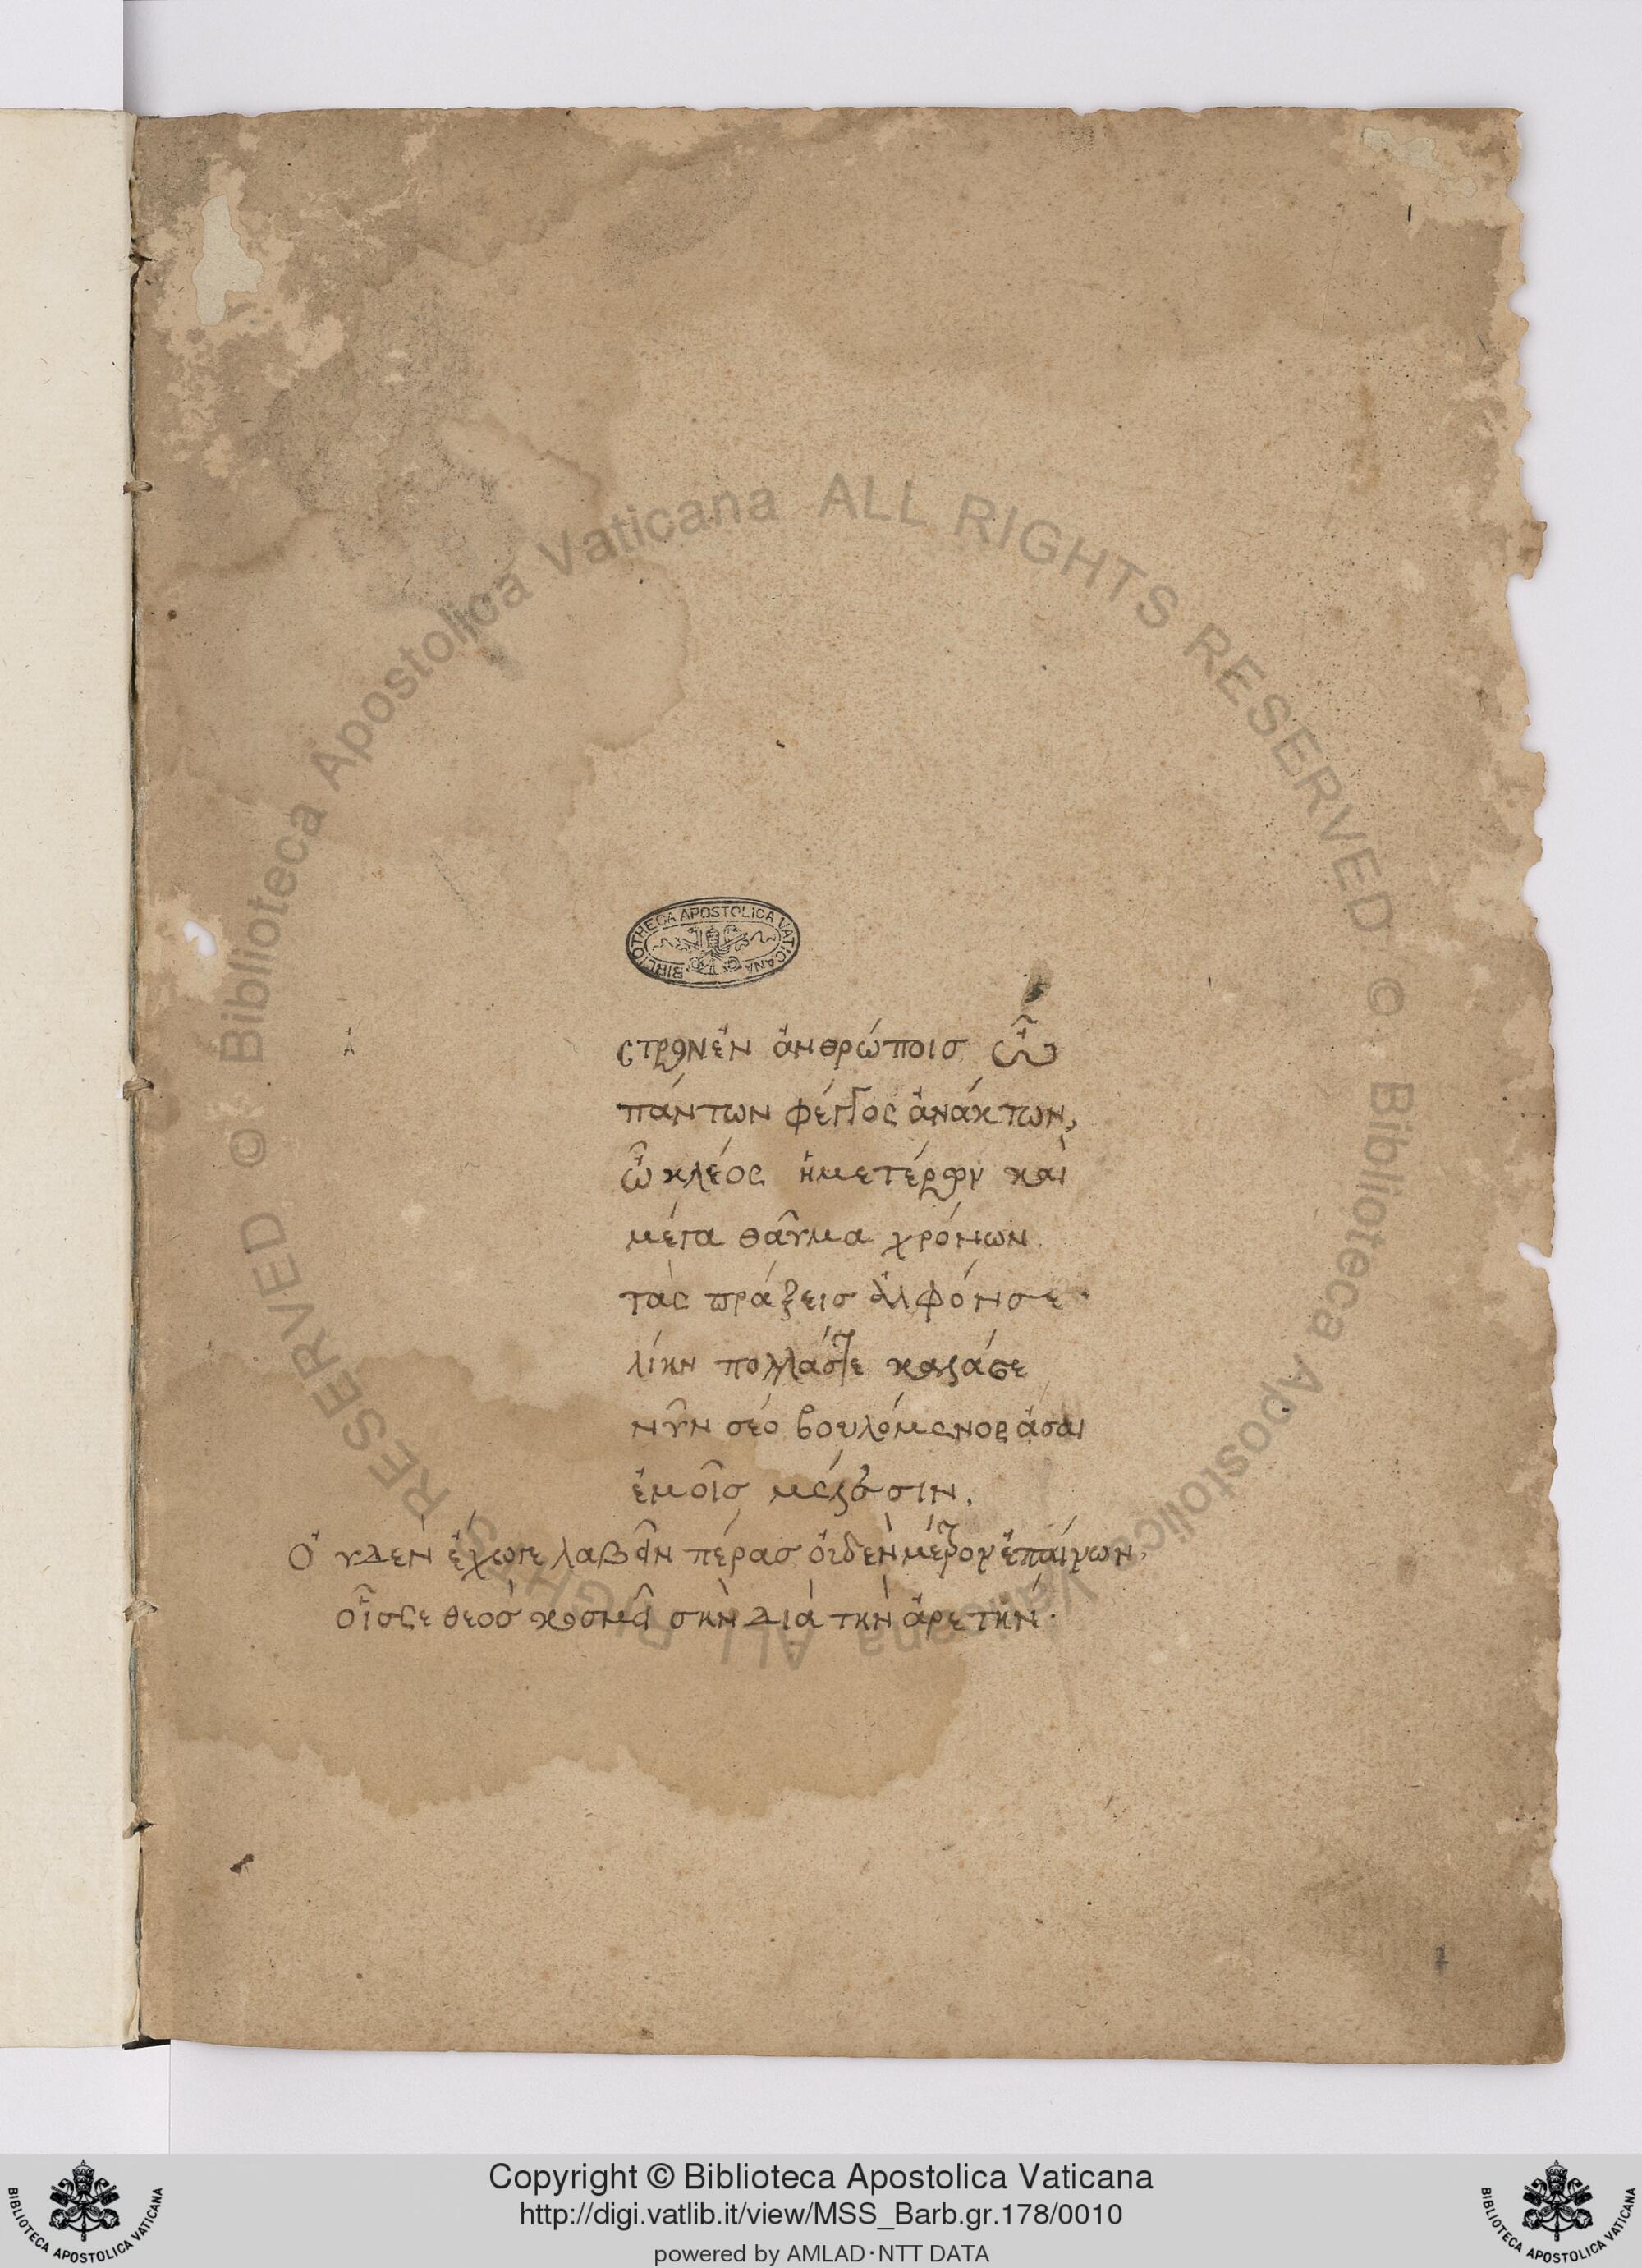 1
BIBLIOTHECA APOSTOLICA VATICANA
ἀ
στρον ἐν ἀνθρώποις ὦ
πάντων φέγγος ἀνάκτων,
ὦ κλέος ἡμετέρων καὶ
μέγα θαῦμα χρόνων.
τὰς πράξεις ἀλφόνσε
λίην πολλάς τε καλάς τε
νῦν σέο βουλόμενος ἆσαι
ἐμοῖς μέλεσιν.
Οὐδὲν ἔχω γε λαβεῖν πέρας οὐδὲν μέτρον ἐπαίνων,
οἷς γε θεὸς κοσμεῖ σὴν διὰ τὴν ἀρετήν.
© Biblioteca Apostolica Vaticana ALL RIGHTS RESERVED © Biblioteca Apostolica Vaticana ALL RIGHTS RESERVED
Copyright © Biblioteca Apostolica Vaticana
http://digi.vatlib.it/view/MSS_Barb.gr.178/0010
powered by AMLAD·NTT DATA
BIBLIOTECA APOSTOLICA VATICANA
BIBLIOTECA APOSTOLICA VATICANA